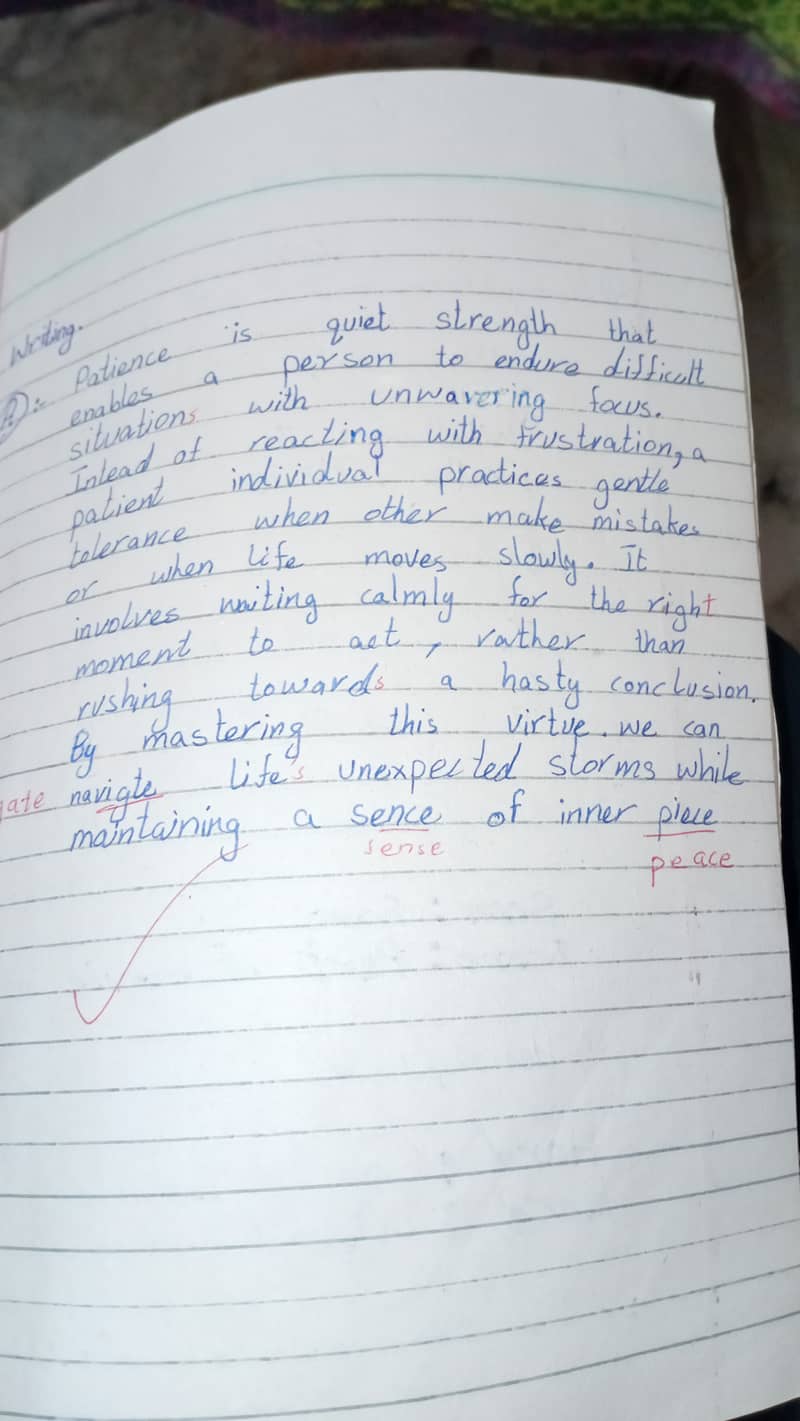 Writing.
Patience is quiet strength that
enables a person to endure difficult
situations with unwavering focus.
Intead of reacting with frustration, a
patient individual practices gentle
tolerance when other make mistakes
or when life moves slowly. It
involves waiting calmly for the right
moment to act, rather than
rushing towards a hasty conclusion.
By mastering this virtue. we can
navigte life's unexpected storms while
maintaining a sence of inner piece
sense
peace